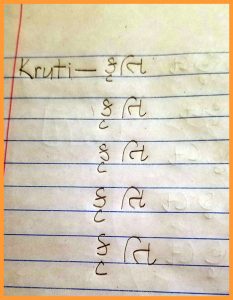 Kruti - કૃતિ
કૃતિ
કૃતિ
કૃતિ
કૃતિ